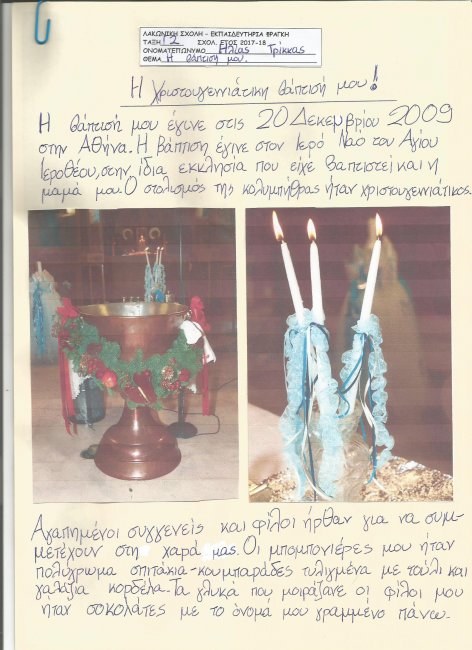 ΛΑΚΩΝΙΚΗ ΣΧΟΛΗ - ΕΚΠΑΙΔΕΥΤΗΡΙΑ ΒΡΑΓΚΗ
ΤΑΞΗ Γ2 ΣΧΟΛ. ΕΤΟΣ 2017-18
ΟΝΟΜΑΤΕΠΩΝΥΜΟ Ηλίας Τρίκκας
ΘΕΜΑ Η βάπτισή μου.
Η Χριστουγεννιάτικη βάπτισή μου!
Η βάπτισή μου έγινε στις 20 Δεκεμβρίου 2009
στην Αθήνα. Η βάπτιση έγινε στον Ιερό Ναό του Αγίου
Ιεροθέου, στην ίδια εκκλησία που είχε βαπτιστεί και η
μαμά μου. Ο στολισμός της κολυμπήθρας ήταν χριστουγεννιάτικος.
Αγαπημένοι συγγενείς και φίλοι ήρθαν για να συμ-
μετέχουν στη χαρά μας. Οι μπομπονιέρες μου ήταν
πολύχρωμα σπιτάκια-κουμπαράδες τυλιγμένα με τούλι και
γαλάζια κορδέλα. Τα γλυκά που μοιράζανε οι φίλοι μου
ήταν σοκολάτες με το όνομά μου γραμμένο πάνω.